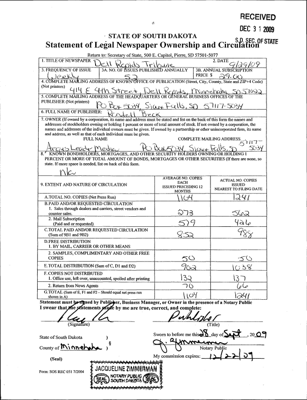 RECEIVED
DEC 31 2009
S.D. SEC. OF STATE
STATE OF SOUTH DAKOTA
Statement of Legal Newspaper Ownership and Circulation
Return to: Secretary of State, 500 E. Capitol, Pierre, SD 57501-5077
1. TITLE OF NEWSPAPER Dell Rapids Tribune
2. DATE
3. FREQUENCY OF ISSUE Weekly
3A. NO. OF ISSUES PUBLISHED ANNUALLY 52
3B. ANNUAL SUBSCRIPTION PRICE $
4. COMPLETE MAILING ADDRESS OF KNOWN OFFICE OF PUBLICATION (Street, City, County, State and ZIP+4 Code) (Not printers)
5. COMPLETE MAILING ADDRESS OF THE HEADQUARTERS OR GENERAL BUSINESS OFFICE OF THE PUBLISHER (Not printers)
Sioux Falls, SD 57117-5034
6. FULL NAME OF PUBLISHER:
Beck
7. OWNER (If owned by a corporation, its name and address must be stated and also on the back of this form the names and addresses of stockholders owning or holding 1 percent or more of total amount of stock. If not owned by a corporation, the names and addresses of the individual owners must be given. If owned by a partnership or other unincorporated firm, its name and address, as well as that of each individual must be given.
FULL NAME
COMPLETE MAILING ADDRESS
Sioux Falls, SD
8. KNOWN BONDHOLDERS, MORTGAGEES, AND OTHER SECURITY HOLDERS OWNING OR HOLDING 1 PERCENT OR MORE OF TOTAL AMOUNT OF BONDS, MORTGAGES OR OTHER SECURITIES (If there are none, so state. If more space is needed, list on back of this form.
9. EXTENT AND NATURE OF CIRCULATION
AVERAGE NO. COPIES EACH ISSUED PRECEDING 12 MONTHS
ACTUAL NO. COPIES ISSUED NEAREST TO FILING DATE
A. TOTAL NO. COPIES (Net Press Run) 1104 1241
B. PAID AND/OR REQUESTED CIRCULATION
1. Sales through dealers and carriers, street vendors and counter sales. 273 562
2. Mail Subscription (Paid and or requested) 579 426
C. TOTAL PAID AND/OR REQUESTED CIRCULATION (Sum of 9B1 and 9B2) 852 988
D. FREE DISTRIBUTION
1. BY MAIL, CARRIER OR OTHER MEANS
2. SAMPLES, COMPLIMENTARY AND OTHER FREE COPIES 50 50
E. TOTAL DISTRIBUTION (Sum of C, D1 and D2) 902 1038
F. COPIES NOT DISTRIBUTED
1. Office use, left over, unaccounted, spoiled after printing 132 137
2. Return from News Agents 70 66
G. TOTAL (Sum of E, F1 and F2 - Should equal net press run shown in A) 1104 1241
Statement must be signed by Publisher, Business Manager, or Owner in the presence of a Notary Public
I swear that the statements made by me are true, correct, and complete:
Publisher
(Signature) (Title)
State of South Dakota
Sworn to before me this 28 day of Sept 2009
County of Minnehaha
Notary Public
(Seal)
My commission expires: 12/22/09
JACQUELINE ZIMMERMAN
NOTARY PUBLIC
SOUTH DAKOTA